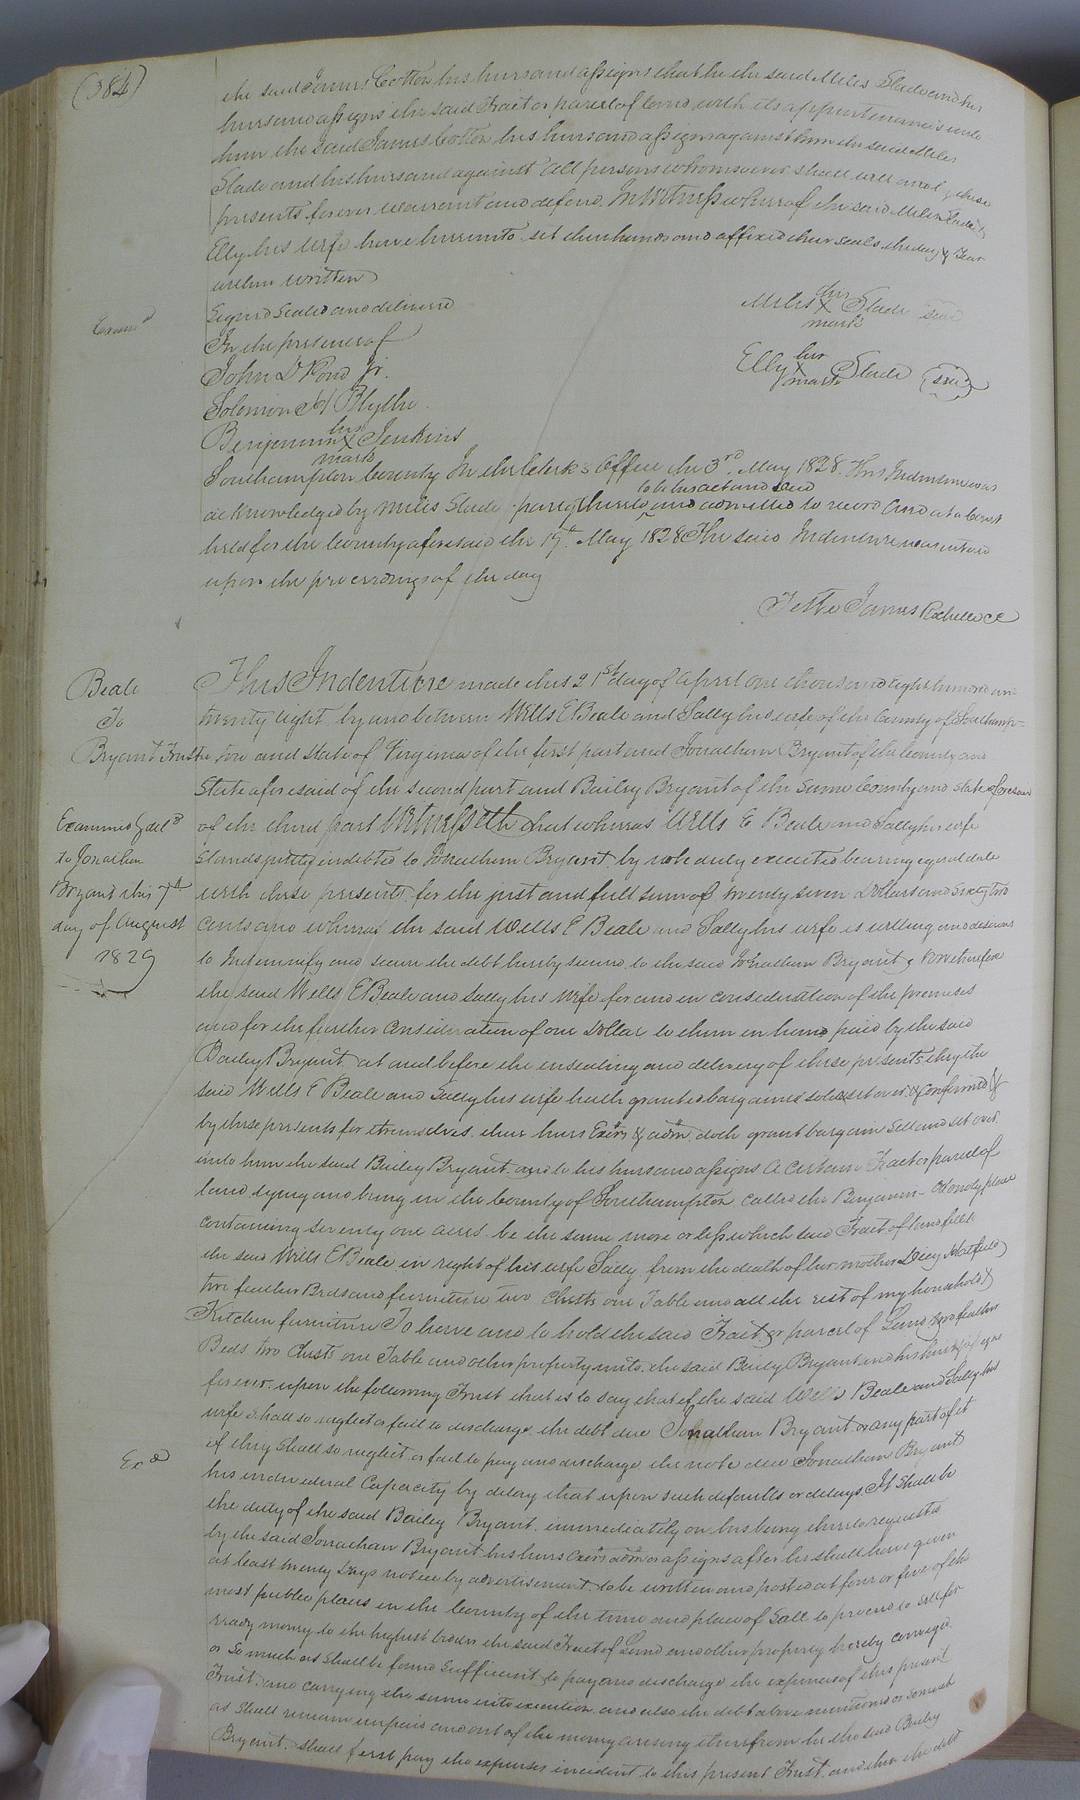 (384)
the said James Cotton his heirs and assigns that he the said Miles Slade and his
heirs and assigns the said Tract or parcel of land with its appurtenances unto
him the said James Cotton his heirs and assigns against him the said Miles
Slade and his heirs and against all persons whomsoever shall will and by these
presents forever warrant and defend. In Witness whereof the said Miles Slade &
Elly his wife have hereunto set their hands and affixed their seals the day & Year
within written
Signed Sealed and delivered
In the presence of
John D Pond Jr.
Solomon Blythe
Benjamin his X mark Jenkins
Miles his X mark Slade seal
Elly her X mark Slade seal
Exam.d
Southampton County In the Clerk's Office the 3rd May 1828. This Indenture was
acknowledged by Miles Slade party thereto to be his act and deed and admitted to record And at a Court
held for the County aforesaid the 19th May 1828 The said Indenture was entered
upon the proceedings of the day
Teste James Rochelle CC
Beale
To
Bryant Trustee
Examined & del.d
to Jonathan
Bryant this 7th
day of August
1829
This Indenture made this 21st day of April one thousand eight hundred and
twenty eight by and between Wells E Beale and Sally his wife of the County of Southamp=
ton and State of Virginia of the first part and Jonathan Bryant of the County and
State aforesaid of the second part and Bailey Bryant of the same County and State aforesaid
of the third part Witnesseth that whereas Wells E Beale and Sally his wife
Stands justly indebted to Jonathan Bryant by note duly executed bearing equal date
with these presents for the just and full sum of twenty seven Dollars and sixty two
Cents and whereas the said Wells E Beale and Sally his wife is willing and desirous
to Indemnify and secure the debt hereby secured to the said Jonathan Bryant, Now therefore
the said Wells E Beale and Sally his Wife for and in consideration of the premises
and for the further Consideration of one Dollar to them in hand paid by the said
Bailey Bryant at and before the ensealing and delivery of these presents they the
said Wells E Beale and Sally his wife hath granted bargained sold set over & Confirmed &
by these presents for themselves their heirs Exors & adm. doth grant bargain Sell and set over
unto him the said Bailey Bryant and to his heirs and assigns a Certain Tract or parcel of
land lying and being in the County of Southampton called the Benjamin place
containing seventy one acres be the same more or less which said Tract of land fell to
the said Wells E Beale in right of his wife Sally from the death of her mother Dicy
two feather Beds and furniture two Chests one Table and all the rest of my household &
Kitchen furniture To have and to hold the said Tract or parcel of Land two feather
Beds two Chests one Table and other property unto the said Bailey Bryant and his heirs
forever. upon the following Trust that is to say that if the said Wells Beale and Sally his
wife shall so neglect or fail to discharge the debt due Jonathan Bryant or any part of it
if they Shall so neglect or fail to pay and discharge the note due Jonathan Bryant
Exd
his individual Capacity by delay that upon such defaults or delays It Shall be
the duty of the said Bailey Bryant immediately on his being thereto requested
by the said Jonathan Bryant his heirs Exors adm or assigns after he shall have given
at least twenty Days notice by advertisement to be written and posted at four or five of the
most public places in the County of the time and place of Sale to proceed to sell for
ready money to the highest bidder the said Tract of Land and other property hereby conveyed
or So much as Shall be found Sufficient to pay and discharge the expenses of this present
Trust and carrying the same into execution and also the debt above mentioned or so much
as Shall remain unpaid and out of the money arising therefrom he the said Bailey
Bryant Shall first pay the expenses incident to this present Trust and then the debt